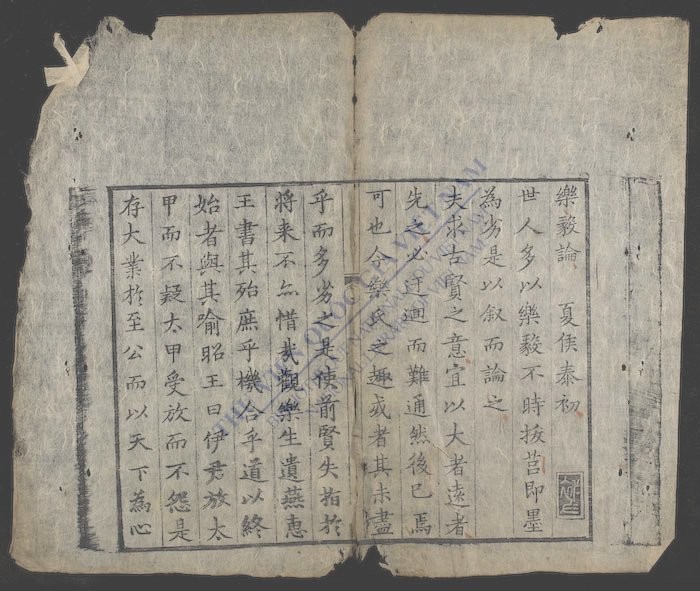 樂毅論　夏侯泰初
世人多以樂毅不時拔莒即墨
為劣是以叙而論之
夫求古賢之意宜以大者遠者
先之必迂迴而難通然後已焉
可也今樂氏之趣或者其未盡
乎而多劣之是使前賢失指於
将来不亦惜哉觀樂生遺燕惠
王書其殆庶乎機合乎道以終
始者與其喻昭王曰伊尹放太
甲而不疑太甲受放而不怨是
存大業於至公而以天下為心